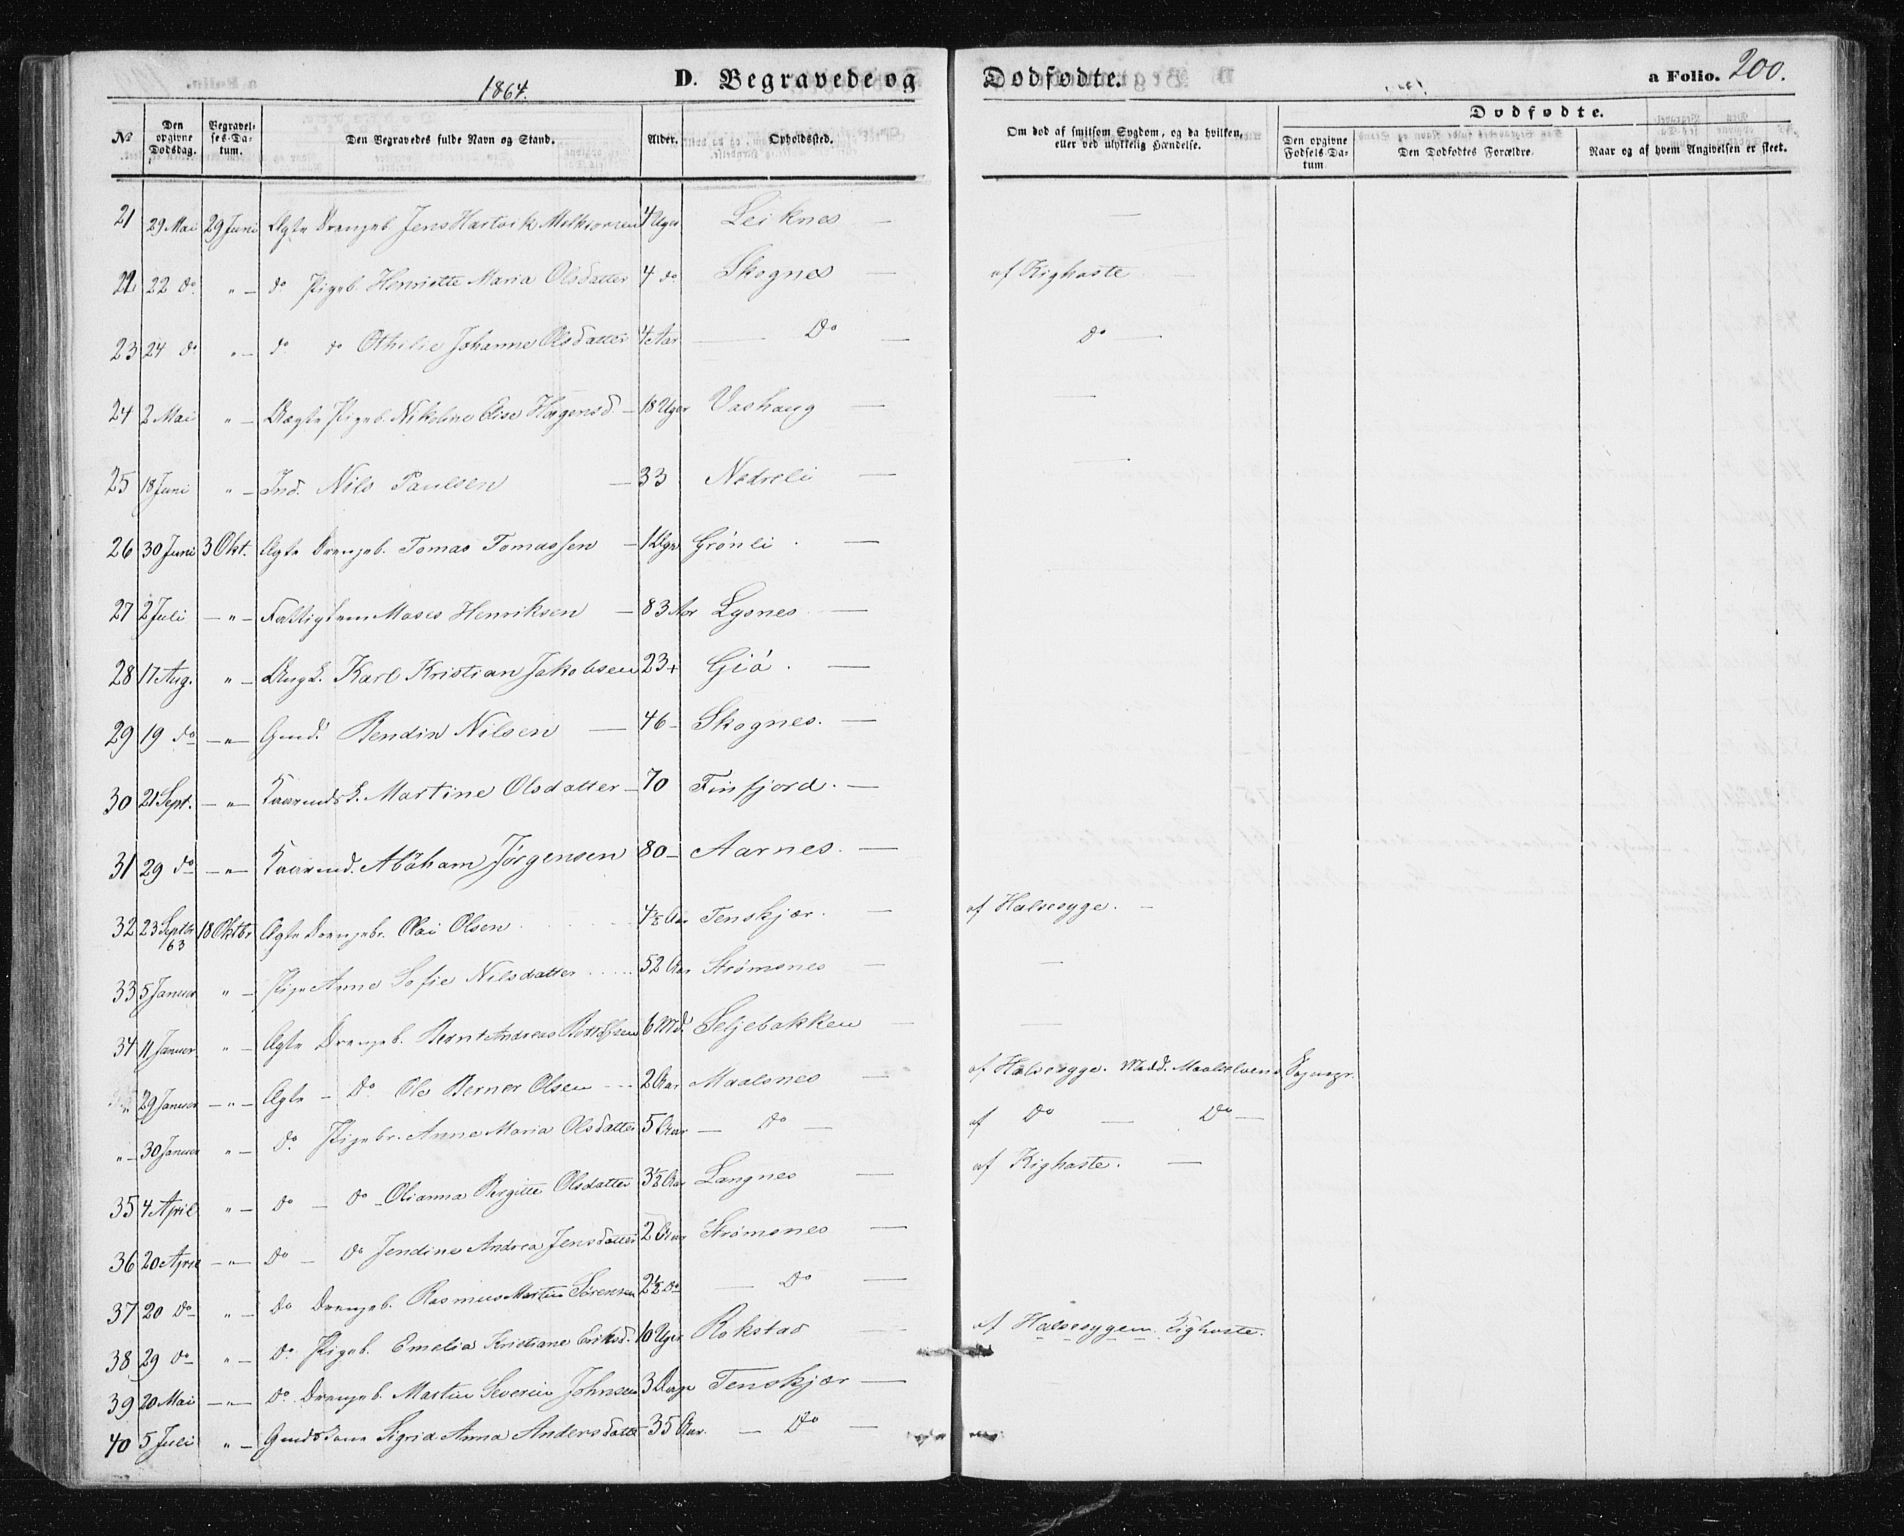 1864. D. Begravede og Dodfodte. a Folio. 200.
Dodfodte.
No Den opgivne Dodsdag. Begravelses-Datum. Den Begravedes fulde Navn og Stand. Alder. Opholdssted. Om dod af smitsom Sygdom, og da hvilken, eller ved ulykkelig Hændelse. Den opgivne Fodsels-Datum Den Dodfodtes Forældre. Naar og af hvem Angivelsen er skeet.
21 29 Mai 29 Juni Ægte Drengeb. Jens Hartvik 4 Uger Leiknes —
22 22 do " — do Pigeb. Henriette Maria Olsdatter 4 do Skognes — af Kighoste —
23 24 do " — do do Othilie Johanne Olsdatter 4 Aar — Do — Do —
24 2 Mai " — Uægte Pigeb. Nikoline Elise Hagensd — 18 Uger Vashaug — —
25 18 Juni " — Ind. Nils Paulsen — 33 Nedreli — —
26 30 Juni 3 Okt. Ægte Drengeb. Tomas Tomassen — 1 Uger Grönli . —
27 2 Juli — " — Fattiglem Moses Henriksen — 83 Aar Lysnes —
28 17 Aug. " — Ungk. Karl Kristian Jakobsen 23 + Giö . —
29 19 do — " — Gmd. Bendix Nilsen — 46 — Skognes. —
30 21 Sept. — " — Kaarmdsk. Martine Olsdatter — 70 Finfjord. —
31 29 do — " — Kaarmd. Abraham Jörgensen 80 — Aarnes. —
32 23 Septbr 63 18 Oktbr Ægte Drengebr. Olai Olsen 4½ Aar Tenskjær. — af Halsesyge. —
33 5 Januar " — Pige Anne Sofie Nilsdatter 52 Aar Strømsnes — —
34 11 Januar " — Ægte Drengeb. Bernt Andreas 6 Md. Seljebakken — —
" 29 Januar — " — Ægte — Do Ole Berner Olsen --- 2 Aar Maalsnes — af Halsesyge. Medd. Maalselvens Sognepr.
" — 30 Januar " — do Pigebr. Anne Maria Olsdatter 5 Aar — Do — af Do — Do —
35 4 April " — do — do — Olianna Bergitte Olsdatter 3½ Aar Langnes — af Kighoste. —
36 20 April — " — do — do Jendine Andrea Jensdatter 2 Aar Strømsnes —
37 20 do " — Do Drengeb. Rasmus Martin Sörensen 2½ do — Do —
38 29 do — " — Do Pigeb. Emelia Kristiane Eriksd. 10 Uger Rokstad — af Halsesygen Kighoste.
39 20 Mai — " — Do Drengeb. Martin Severin Johnsen 3 Dage Tenskjær —
40 5 Juli " — Gmdskone Sigrid Anna Andersdatter 35 Aar. — Do —